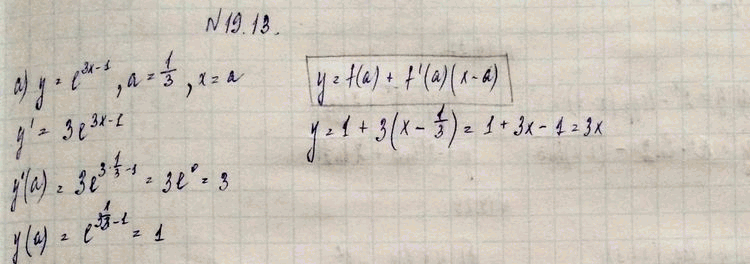 № 19.13.
а) y = e^{3x-1}, a = \frac{1}{3}, x = a
y' = 3e^{3x-1}
y'(a) = 3e^{3·\frac{1}{3}-1} = 3e^0 = 3
y(a) = e^{3\frac{1}{3}-1} = 1
y = f(a) + f'(a)(x-a)
y = 1 + 3(x - \frac{1}{3}) = 1 + 3x - 1 = 3x